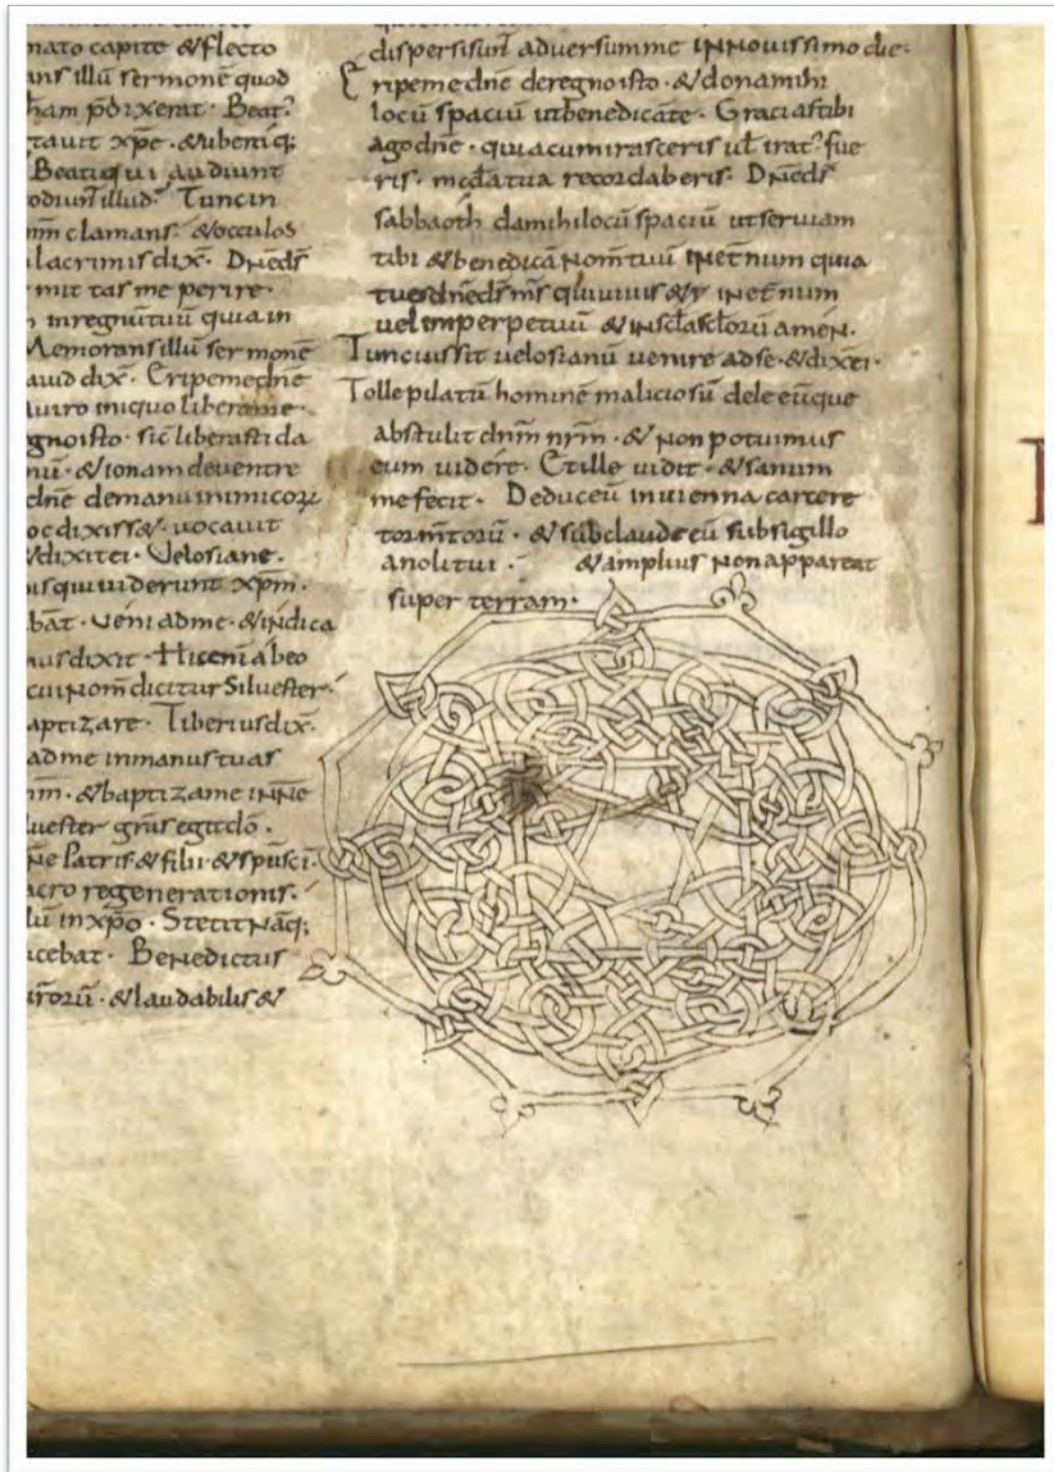 nato capite & flecto
ans illū sermonē quod
ham p̄dixerat. Beat᷒
tauit xp̄e. & uberiq;
Beati qui audiunt
odiunt illud. Tunc in
clamans. & occulos
lacrimis dix̄. Dn̄e ds̄
mittas me perire.
in regnū tuū quia in
Memorans illū sermonē
auid dix̄. Eripe me dn̄e
a uiro iniquo libera me.
gno isto. sic̄ liberasti da
nū. & ionam de uentre
dn̄e de manu inimicoꝝ
oc dixiss&. uocauit
& dixit ei. Uelosiane.
is qui uiderunt xp̄m.
bāt. Ueni ad me. & indica
us dixit. Hic eni ab eo
cui nom̄ dicitur Siluester.
aptizare. Tiberius dix̄.
ad me in manus tuas
& baptiza me IN Ne
luester grās egit dō.
Ne Patris & filii & sp̄us sc̄i.
acro regenerationis.
lū in xp̄o. Stetit Nāq;
icebat. BeNedictus
& laudabilis &
dispersi sunt aduersum me IN Nouissimo die.
Eripe me dn̄e de regno isto. & dona mihi
locū spaciū ut benedicāte. Gracias tibi
ago dn̄e. quia cum irasceris ul̄ irat᷒ fue
ris. mcd̄a tua recordaberis. DNe ds̄
sabbaoth da mihi locū spaciū ut seruiam
tibi & benedicā Nom̄ tuū IN et̄num quia
tu es dn̄e ds̄ ms̄ qui uiuis & r̄ IN et̄num
uel imperpetuū & IN scl̄a scl̄orū amēn.
Tunc iussit uelosianū uenire ad se. & dix̄ ei.
Tolle pilatū hominē maliciosū dele eūque
abstulit dnm̄ nrm̄. & Non potuimus
eum uidere. Et ille uidit. & sanum
me fecit. Deduc eū in uienna carcere
torm̄torū. & sub claude eū sub sigillo
anoli tui. & amplius Non appareat
super terram.